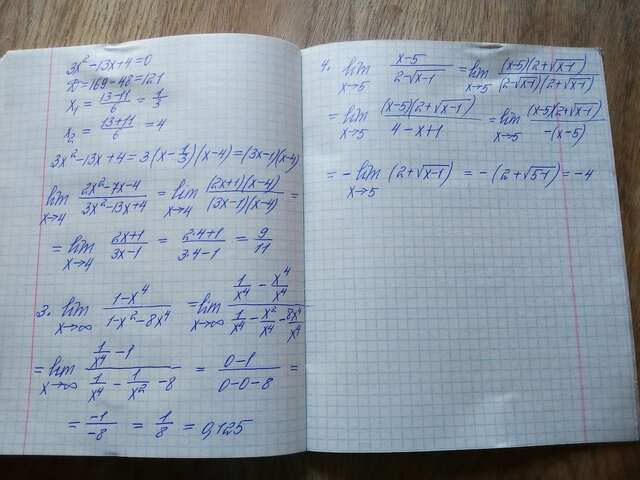 3x² - 13x + 4 = 0
D = 169 - 48 = 121
x₁ = (13 - 11)/6 = 1/3
x₂ = (13 + 11)/6 = 4
3x² - 13x + 4 = 3(x - 1/3)(x - 4) = (3x - 1)(x - 4)
lim x→4 (2x² - 7x - 4)/(3x² - 13x + 4) = lim x→4 ((2x + 1)(x - 4))/((3x - 1)(x - 4)) =
= lim x→4 (2x + 1)/(3x - 1) = (2·4 + 1)/(3·4 - 1) = 9/11
3. lim x→∞ (1 - x⁴)/(1 - x² - 8x⁴) = lim x→∞ (1/x⁴ - x⁴/x⁴)/(1/x⁴ - x²/x⁴ - 8x⁴/x⁴)
= lim x→∞ (1/x⁴ - 1)/(1/x⁴ - 1/x² - 8) = (0 - 1)/(0 - 0 - 8) =
= -1/-8 = 1/8 = 0,125
4. lim x→5 (x - 5)/(2 - √x-1) = lim x→5 ((x - 5)(2 + √x-1))/((2 - √x-1)(2 + √x-1))
= lim x→5 ((x - 5)(2 + √x-1))/(4 - x + 1) = lim x→5 ((x - 5)(2 + √x-1))/(-(x - 5))
= - lim x→5 (2 + √x-1) = - (2 + √5-1) = -4